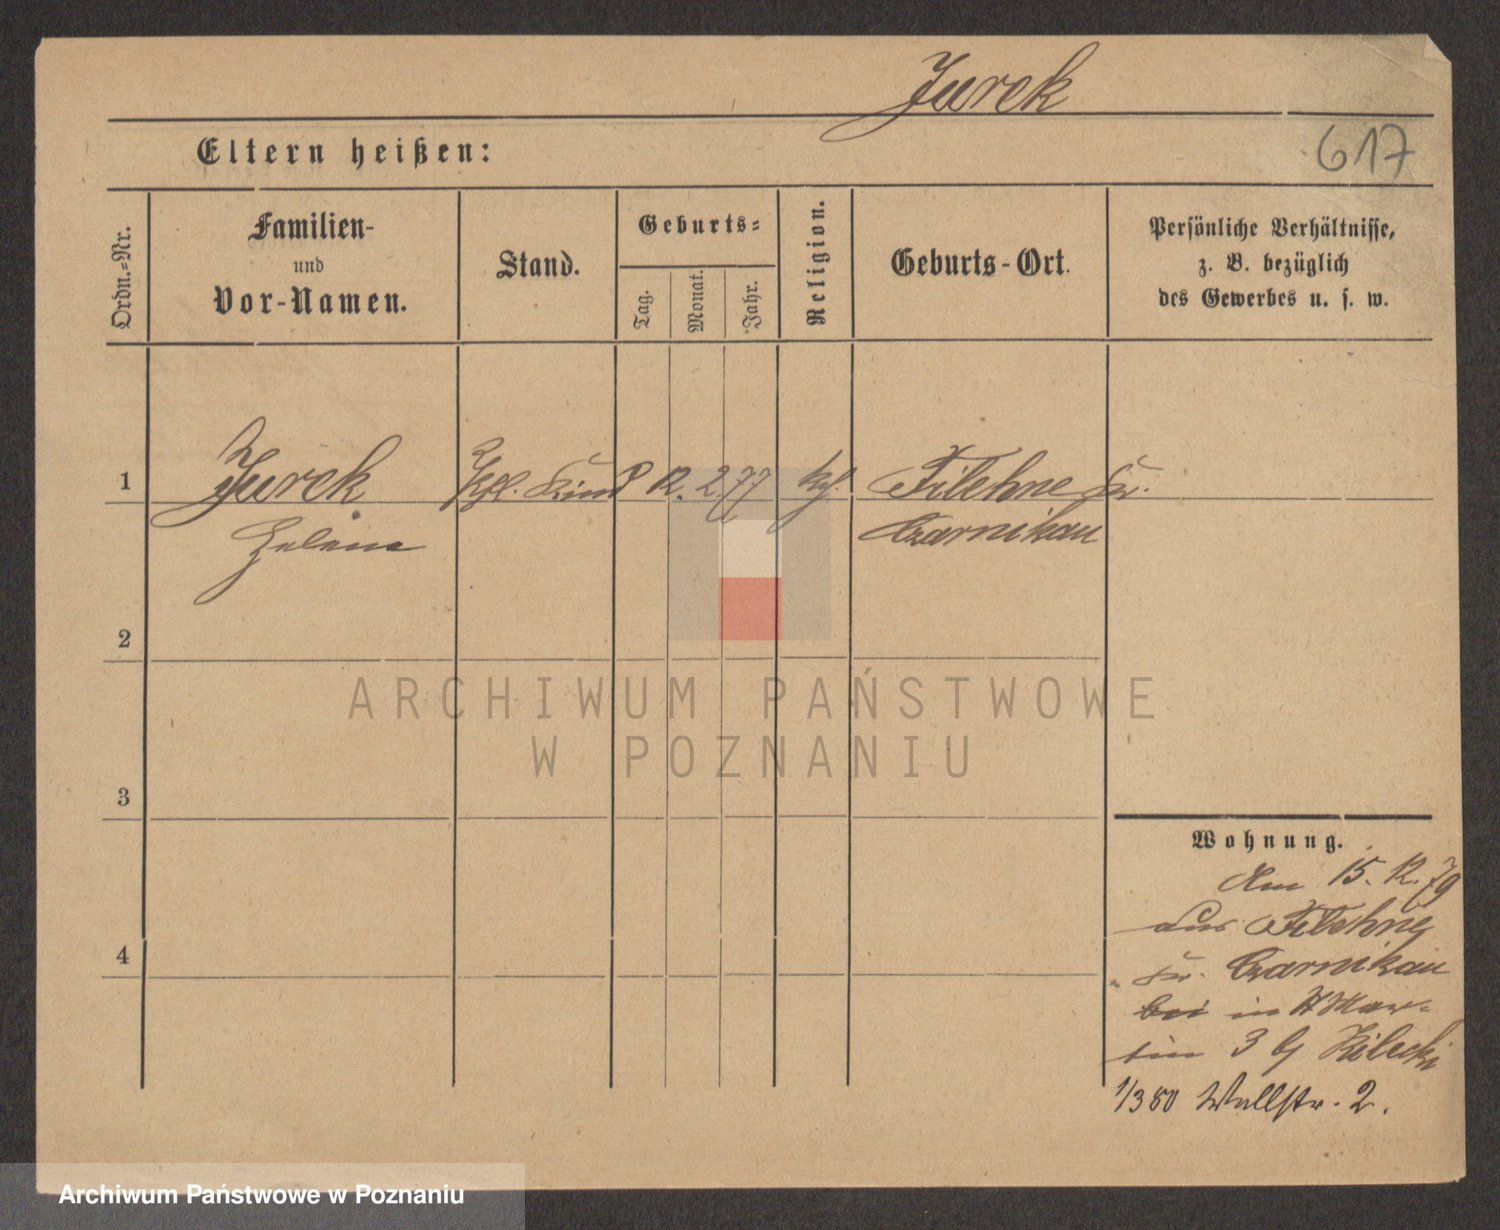 Jurek
617
Eltern heißen:
Ordn.-Nr.
Familien-
und
Vor-Namen.
Stand.
Geburts-
Tag.
Monat.
Jahr.
Religion.
Geburts-Ort.
Persönliche Verhältnisse,
z. B. bezüglich
des Gewerbes u. s. w.
1
Jurek
Helene
Kind
12. 2 77
Filehne Kr.
Czarnikau
2
ARCHIWUM PAŃSTWOWE
W POZNANIU
3
Wohnung.
Am 15. 12. 79
aus Filehne
Kr. Czarnikau
bei in St Mar-
tin 3 bj
4
1/3 80 Wallstr. 2.
Archiwum Państwowe w Poznaniu